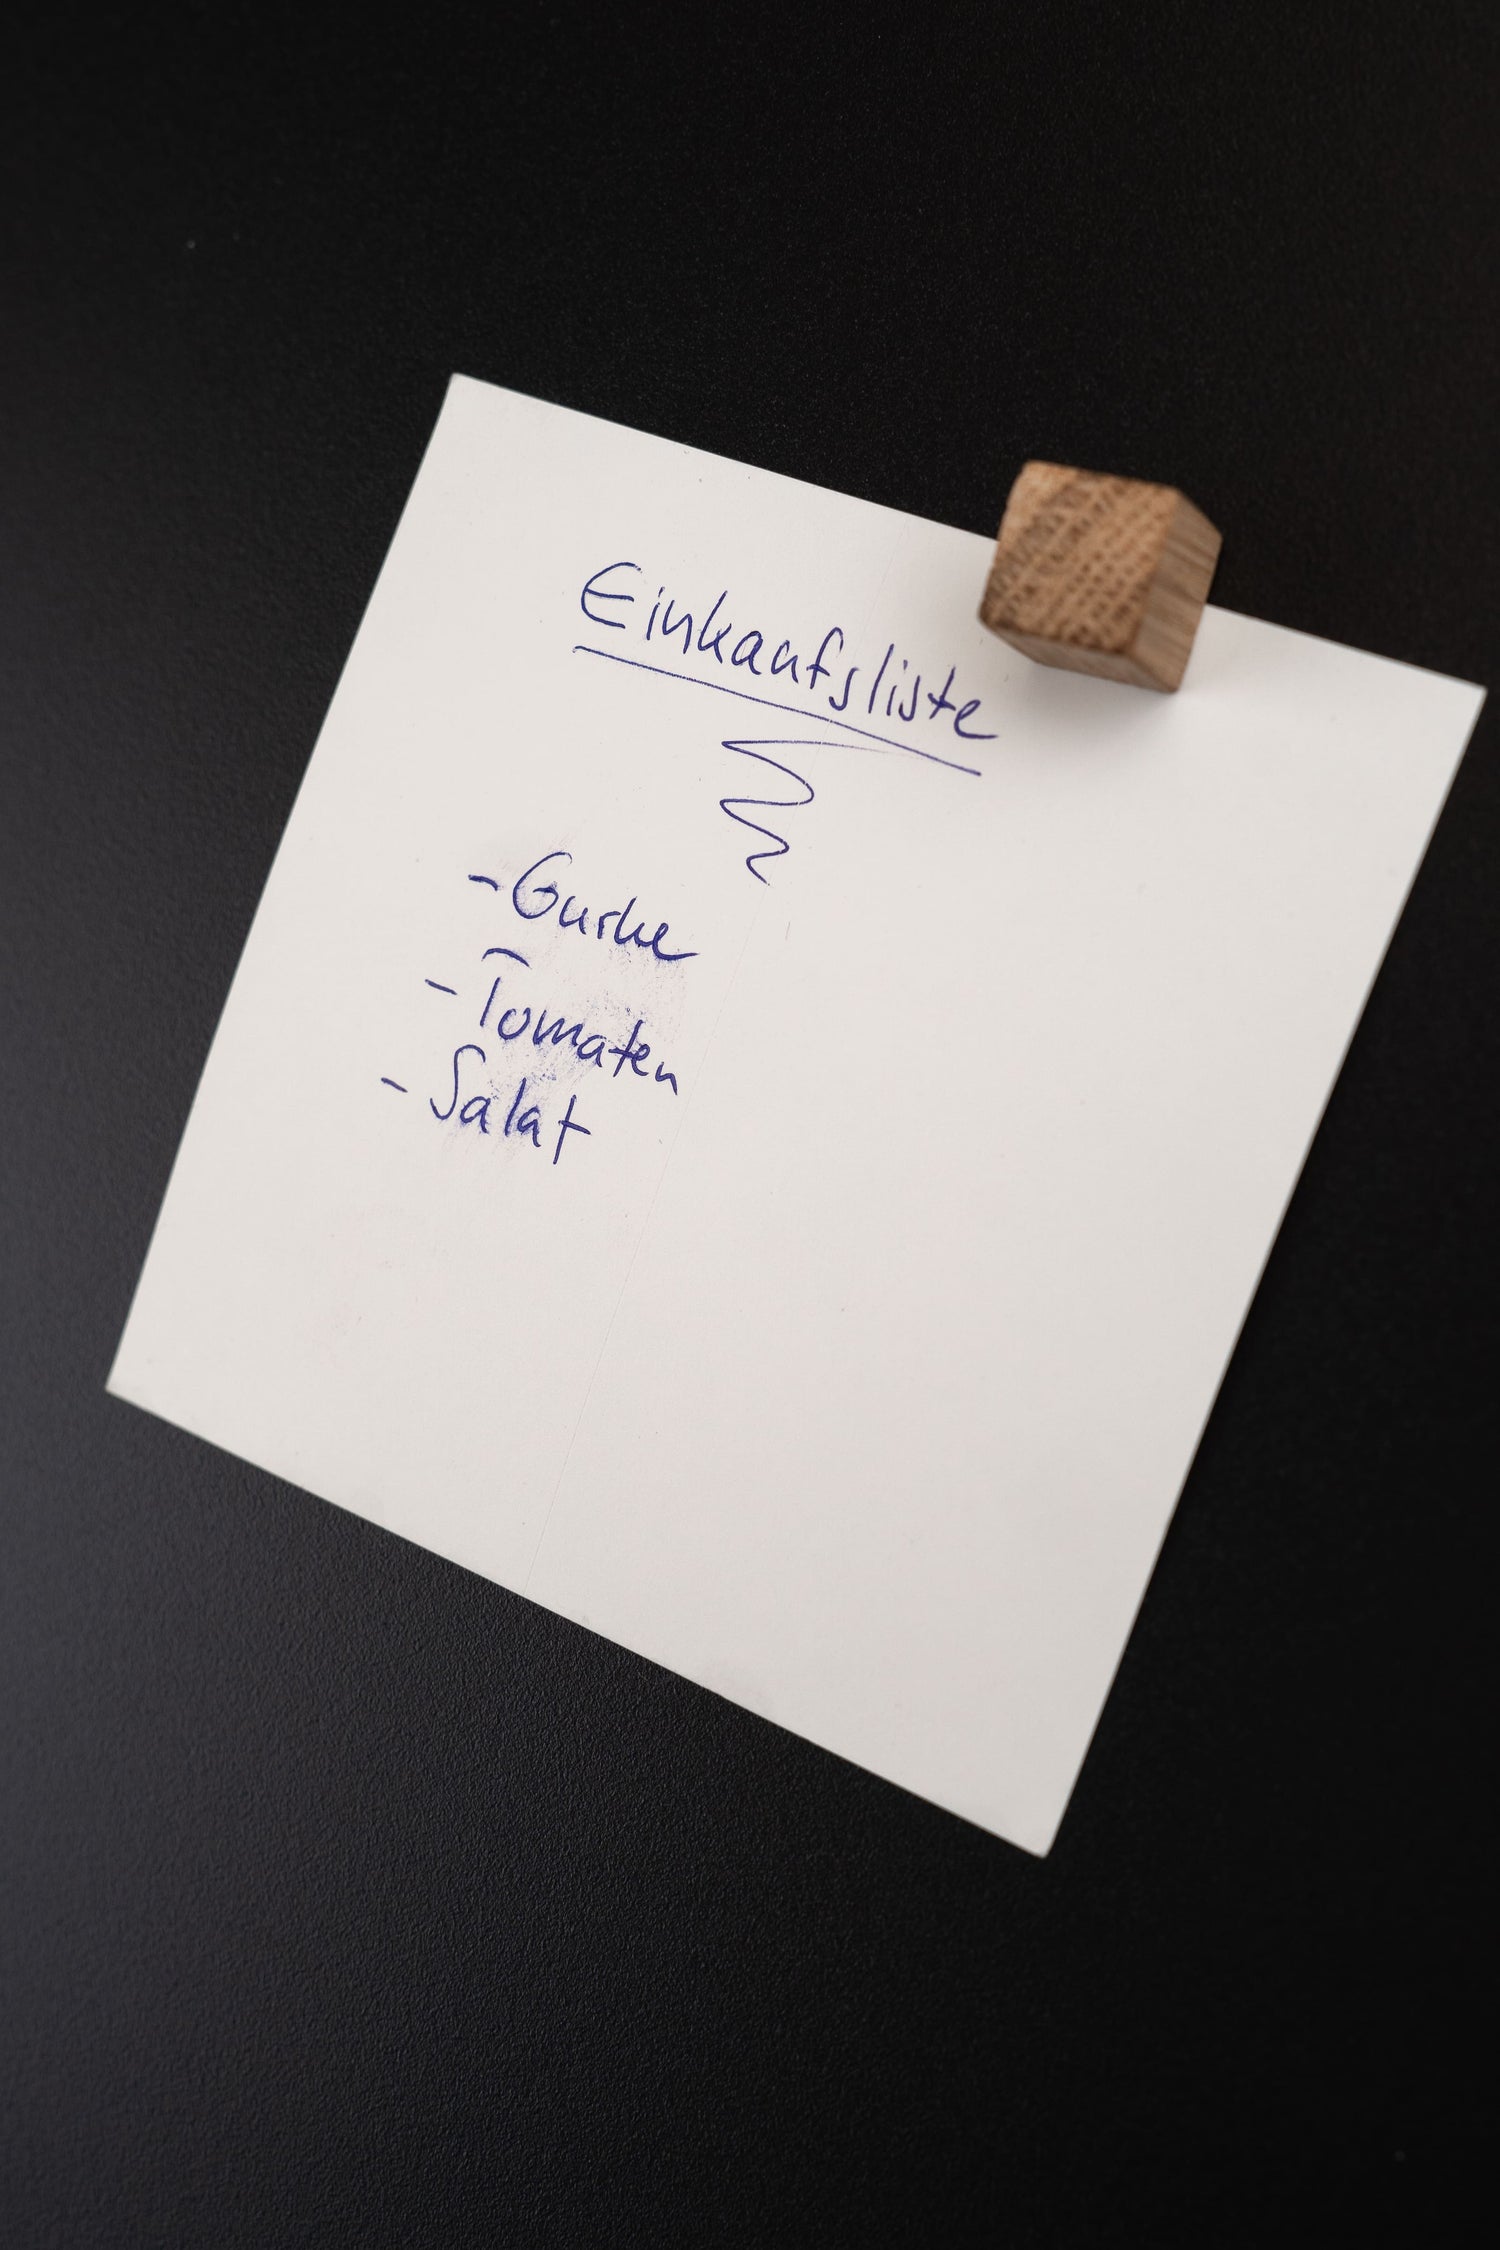 Einkaufsliste
- Gurke
- Tomaten
- Salat